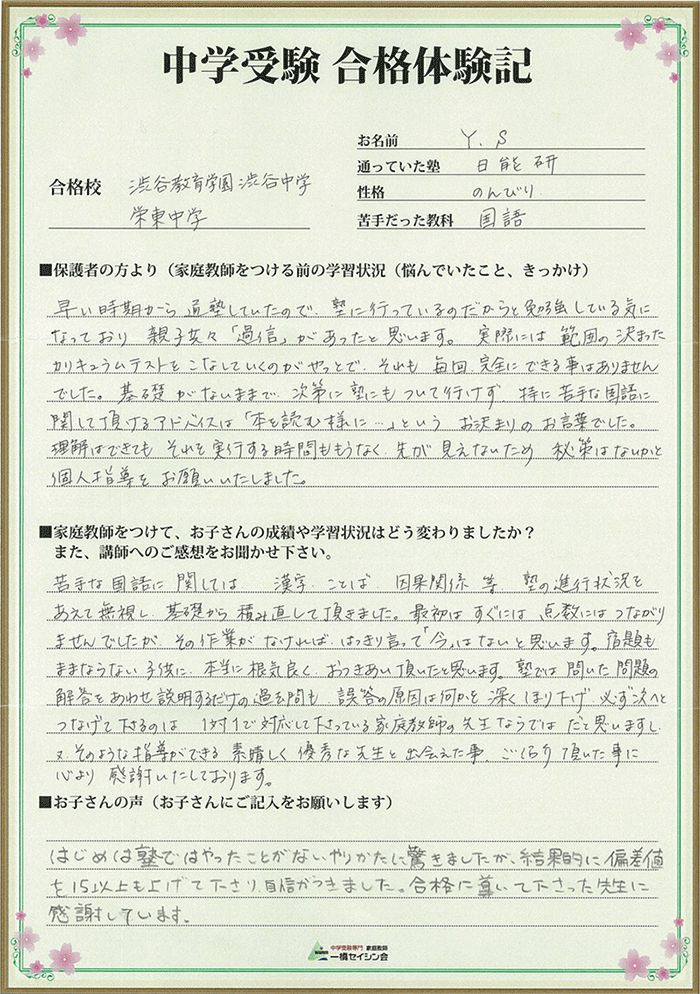 中学受験 合格体験記
お名前 Y. S
通っていた塾 日能研
合格校 渋谷教育学園渋谷中学
栄東中学
性格 のんびり
苦手だった教科 国語
■保護者の方より（家庭教師をつける前の学習状況（悩んでいたこと、きっかけ）
早い時期から通塾していたので、塾に行っているのだからと勉強している気に
なっており 親子共々「過信」があったと思います。実際には 範囲の決まった
カリキュラムテストをこなしていくのがやっとで、それも毎回完全にできる事はありません
でした。基礎がないままで、次第に塾にもついて行けず 特に苦手な国語に
関して頂けるアドバイスは「本を読む様に…」という お決まりのお言葉でした。
理解はできても それを実行する時間ももうなく、先が見えないため 秘策はないかと
個人指導をお願いいたしました。
■家庭教師をつけて、お子さんの成績や学習状況はどう変わりましたか？
また、講師へのご感想をお聞かせ下さい。
苦手な国語に関しては 漢字、ことば、因果関係 等 塾の進行状況を
あえて無視し、基礎から積み直して頂きました。最初は すぐには 点数にはつながり
ませんでしたが、その作業がなければ、はっきり言って「今」はないと思います。宿題も
ままならない子供に、本当に根気良く、おつきあい頂いたと思います。塾では 問いた問題の
解答をあわせ説明するだけの過去問も、誤答の原因は何かを 深くほり下げ、必ず次へと
つなげて下さるのは 1対1で対応して下さっている家庭教師の先生ならでは だと思いますし、
又、そのような指導ができる 素晴しく 優秀な先生と出会えた事、ご縁 頂いた事に
心より 感謝いたしております。
■お子さんの声（お子さんにご記入をお願いします）
はじめは塾ではやったことがないやりかたに驚きましたが、結果的に偏差値
を15以上も上げて下さり、自信がつきました。合格に導いて下さった先生に
感謝しています。
中学受験専門 家庭教師
一橋セイシン会